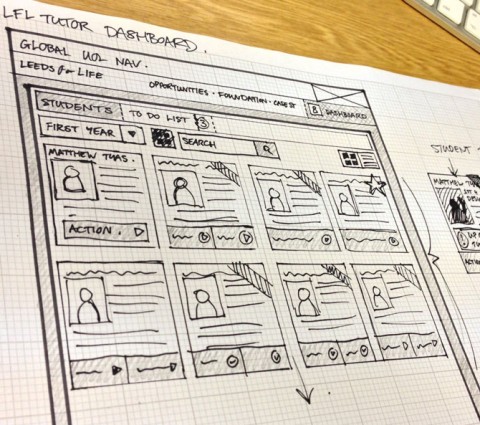 LFL TUTOR DASHBOARD.
GLOBAL UOL NAV.
LEEDS for LIFE
OPPORTUNITIES · FOUNDATION · CASE ST
8 DASHBOARD
STUDENTS
TO DO LIST 3
FIRST YEAR
SEARCH
MATTHEW THAS.
ACTION.
STUDENT
MATTHEW